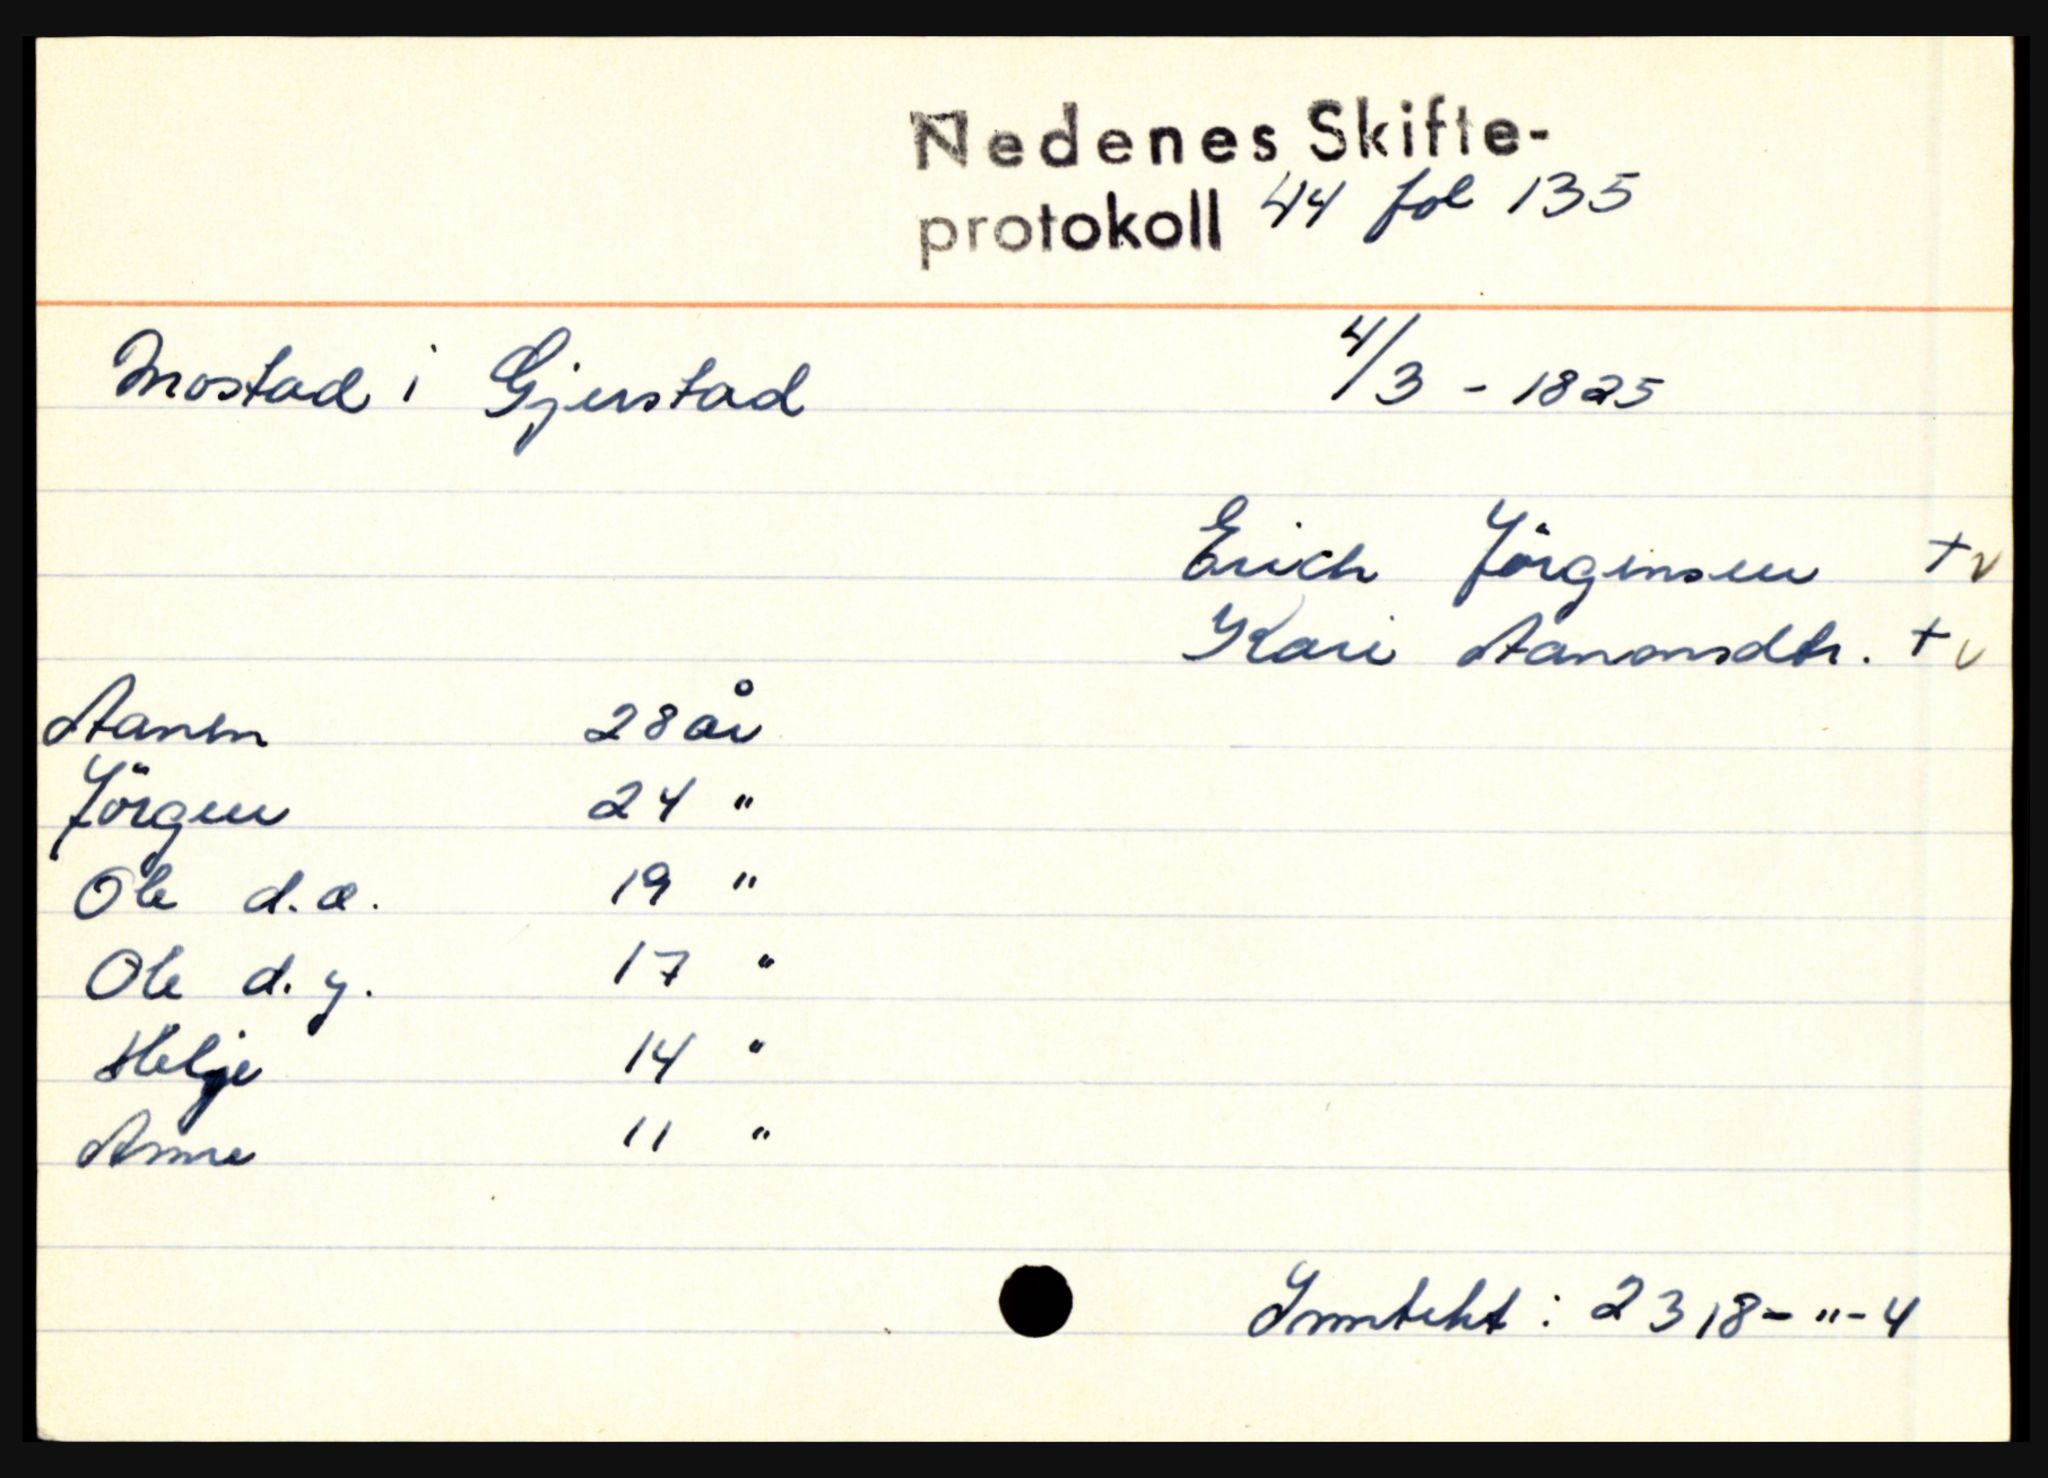 Nedenes Skifte-
protokoll 44 fol 135
Mostad i Gjerstad 4/3 - 1825
Erich Jörgensen + v
Kari Aanonsdtr. + v
Aanen 28 år
Jörgen 24 "
Ole d.e. 19 "
Ole d.y. 17 "
Helje 14 "
Anne 11 "
Inntekt : 2318-"-4